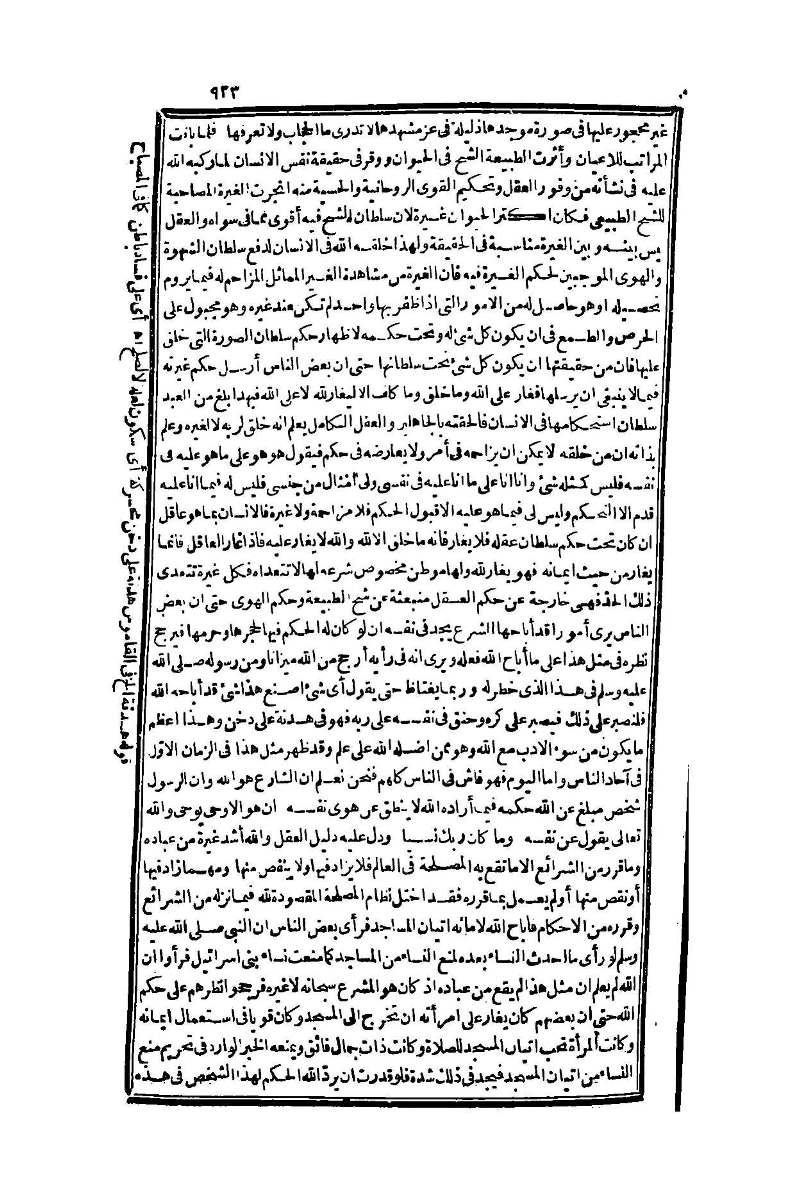 ٩٢٣
غير محجور عليها فى صورة موجدها ذليلة فى عز مشهدها لا تدرى ما الحجاب ولا تعرفها فلما بانت
المراتب للاعيان وأثرت الطبيعة الشح فى الحيوان ووقر فى حقيقة نفس الانسان لما ركبه الله
عليه فى نشأته من وفور العقل وتحكيم القوى الروحانية والحسية منه انجرت الغيرة المصاحبة
للشح الطبيعى فكان اكثر الحيوان غيرة لان سلطان الشح فيه أقوى مما فى سواه والعقل
ليس بينه وبين الغيرة مناسبة فى الحقيقة ولهذا خلقه الله فى الانسان لدفع سلطان الشهوة
والهوى الموجبين لحكم الغيرة فيه فان الغيرة من مشاهدة الغير المماثل المزاحم له فيما يروم
تحصيله اوهو حاصل له من الامور التى اذا ظفر بها واحد لم تكن عند غيره وهو مجبول على
الحرص والطمع فى ان يكون كل شئ له وتحت حكمه لاظهار حكم سلطان الصورة التى خلق
عليها فان من حقيقتها ان يكون كل شئ تحت سلطانها حتى ان بعض الناس أرسل حكم غيرته
فيما لا ينبغى ان يرسلها فغار على الله وما خلق وما كلف الا ليغار لله لا على الله فبهذا بلغ من العبد
سلطان استحكامها فى الانسان فالحقته بالجاهلين والعقل الكامل يعلم انه خلق لربه لا لغيره وعلم
بذاته ان من خلقه لا يمكن ان يزاحمه فى أمر ولا يعارضه فى حكم فيقول هو هو على ما هو عليه فى
نفسه فليس كمثله شئ وانا انا على ما انا عليه فى نفسى ولى أمثال من جنسى فليس له فيما انا عليه
قدم الا التحكم وليس لى فيما هو عليه الا قبول الحكم فلا مزاحمة ولا غيرة فالانسان بما هو عاقل
ان كان تحت حكم سلطان عقله فلا يغار فانه ما خلق الا لله والله لا يغار عليه فاذا غار العاقل فانما
يغار من حيث ايمانه فهو يغار لله ولها موطن مخصوص شرعه لها لا تتعداه فكل غيرة تتعدى
ذلك الحد فهى خارجة عن حكم العقل منبعثة عن شح الطبيعة وحكم الهوى حتى ان بعض
الناس يرى أمورا قد أباحها الشرع يجد فى نفسه ان لو كان له الحكم فيها لحجرها وحرمها فيرجح
نظره فى مثل هذا على ما أباح الله فعله ويرى انه فى رأيه أرجح من الله ميزانا ومن رسوله صلى الله
عليه وسلم فى هذا الذى خطر له وربما يغتاظ حتى يقول أى شئ اصنع هذا شئ قد أباحه الله
فلنصبر على ذلك فيصبر على كره وحنق فى نفسه على ربه فهو فى هدنة على دخن وهذا اعظم
ما يكون من سوء الادب مع الله وهو ممن اضله الله على علم وقد ظهر مثل هذا فى الزمان الاول
فى آحاد الناس واما اليوم فهو فاش فى الناس كلهم فنحن نعلم ان الشارع هو الله وان الرسول
شخص مبلغ عن الله حكمه فيما أراده الله لا ينطق عن هوى نفسه ان هو الا وحى يوحى والله
تعالى يقول عن نفسه وما كان ربك نسيا ودل عليه دليل العقل والله أشد غيرة من عباده
وما قرر من الشرائع الا ما تقع به المصلحة فى العالم فلا يزاد فيها ولا ينقص منها ومهما زاد فيها
أو نقص منها أو لم يعمل بما قرره فقد اختل نظام المصلحة المقصودة لله فيما نزله من الشرائع
وقرره من الاحكام فأباح الله لامائه اتيان المساجد فرأى بعض الناس ان النبى صلى الله عليه
وسلم لو رأى ما احدث النساء بعده لمنع النساء من المساجد كما منعت نساء بنى اسرائيل فرأوا ان
الله لم يعلم ان مثل هذا لم يقع من عباده اذ كان هو المشرع سبحانه لا غيره فرجحوا نظرهم على حكم
الله حتى ان بعضهم كان يغار على امرأته ان تخرج الى المسجد وكان قويا فى استعمال ايمانه
وكانت المرأة تحب اتيان المسجد للصلاة وكانت ذات جمال فائق ويمنعه الخبر الوارد فى تحريم منع
النساء من اتيان المسجد فيجد فى ذلك شدة فلو قدرت ان يرد الله الحكم لهذا الشخص فى هذه
قوله هدنة الخ فى القاموس هدنة على دخن محركة أى سكون لعلة لا لصلح اه أى على فساد باطن كما فى المصباح